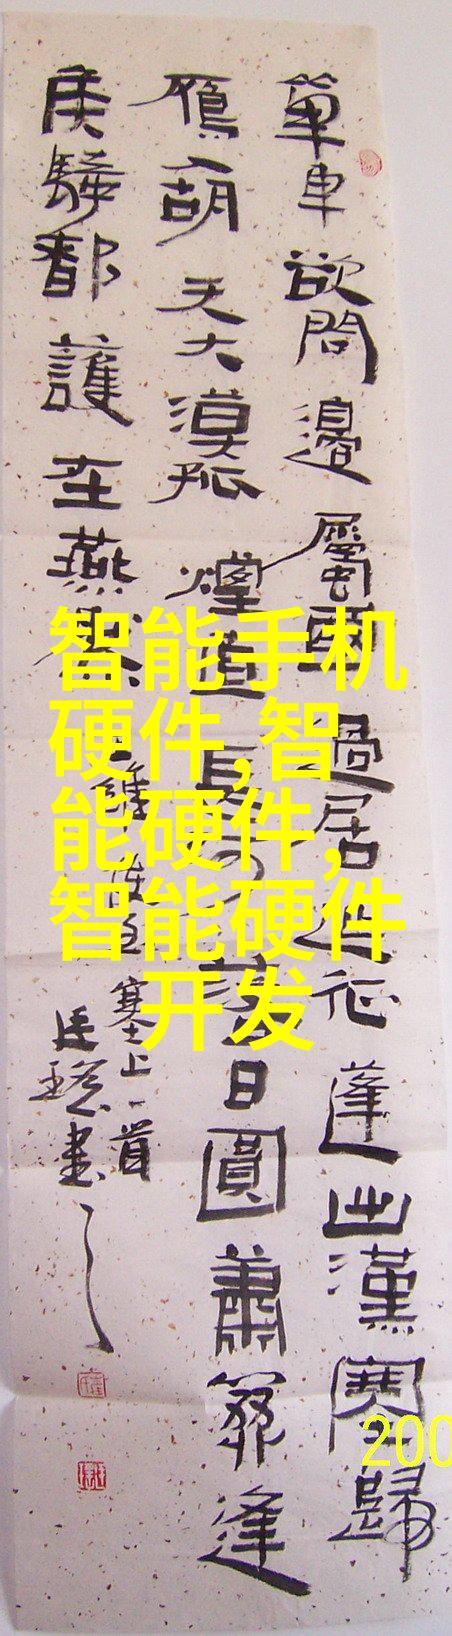 單車欲問邊屬國過居延征蓬出漢塞歸
鴈入胡天大漠孤煙直長河落日圓蕭關逢
候騎都護在燕然
王維使至塞上一首
書
智能手机
硬件,智
能硬件,
智能硬件
开发
200